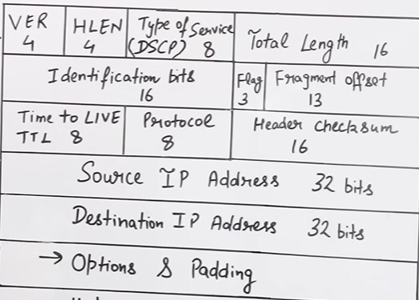 VER HLEN Type of Service Total Length 16
4 4 (DSCP) 8
Identification bits Flag Fragment offset
16 3 13
Time to LIVE Protocol Header checksum
TTL 8 8 16
Source IP Address 32 bits
Destination IP Address 32 bits
→ Options & Padding